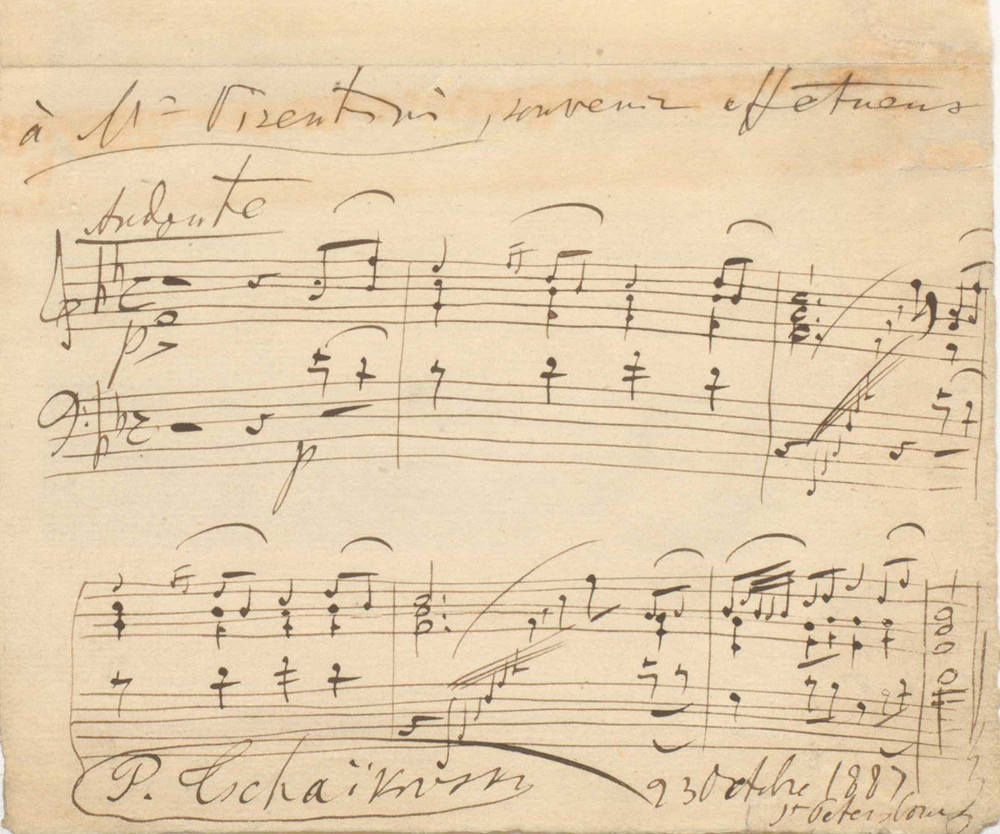 à Mr Vizentini, souvenir affétueus
Andante
p
p
P. Tschaïkovsky
23 Octbre 1887
St Petersbourg